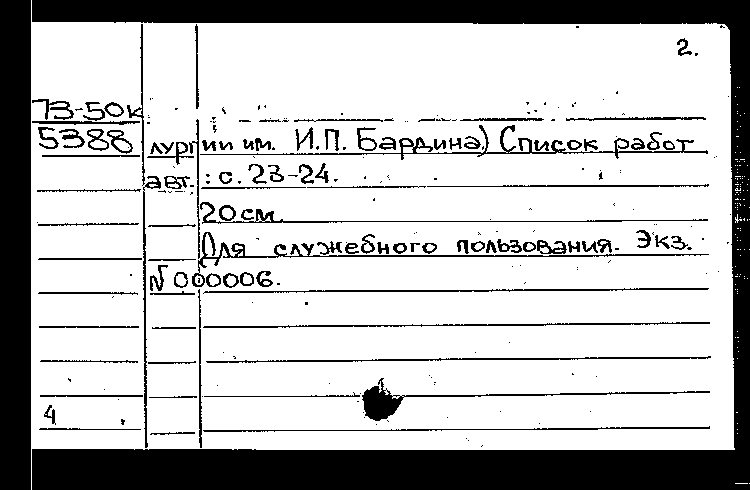 2.
73-50к
5388 лургии им. И.П. Бардина) Список работ
авт.: с. 23-24.
20 см.
Для служебного пользования. Экз.
№ 000006.
4